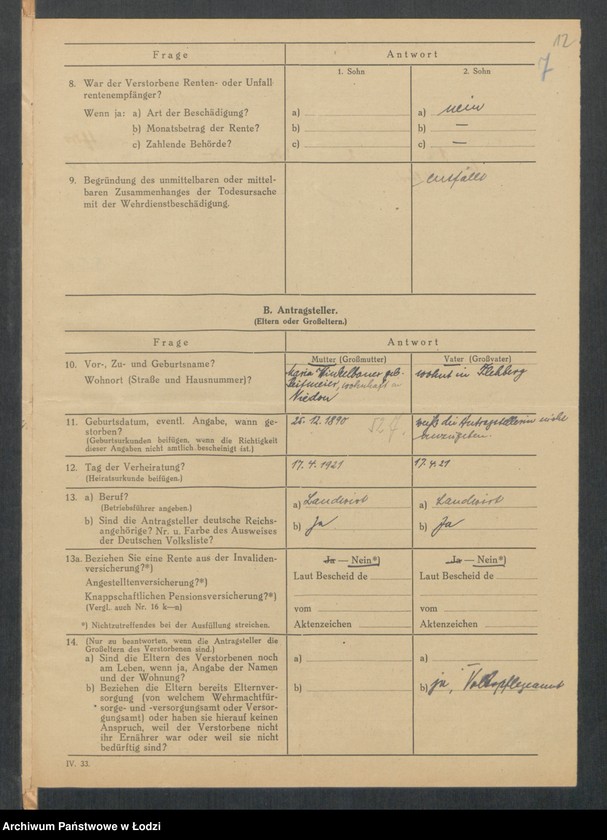 12
7
Frage Antwort
1. Sohn 2. Sohn
8. War der Verstorbene Renten- oder Unfall
rentenempfänger?
Wenn ja: a) Art der Beschädigung? a) a) nein
b) Monatsbetrag der Rente? b) b) —
c) Zahlende Behörde? c) c) —
9. Begründung des unmittelbaren oder mittel-
baren Zusammenhanges der Todesursache
mit der Wehrdienstbeschädigung.
entfällt
B. Antragsteller.
(Eltern oder Großeltern.)
Frage Antwort
Mutter (Großmutter) Vater (Großvater)
10. Vor-, Zu- und Geburtsname?
Wohnort (Straße und Hausnummer)?
Maria Winkelbauer geb.
wohnhaft in
wohnt in
11. Geburtsdatum, eventl. Angabe, wann ge-
storben?
(Geburtsurkunden beifügen, wenn die Richtigkeit
dieser Angaben nicht amtlich bescheinigt ist.)
26. 12. 1890
weiß die Antragstellerin nicht
anzugeben.
12. Tag der Verheiratung?
(Heiratsurkunde beifügen.)
17. 4. 1921 17. 4. 21
13. a) Beruf?
(Betriebsführer angeben.)
a) Landwirt a) Landwirt
b) Sind die Antragsteller deutsche Reichs-
angehörige? Nr. u. Farbe des Ausweises
der Deutschen Volksliste?
b) Ja b) Ja
13a. Beziehen Sie eine Rente aus der Invaliden-
versicherung?*)
Angestelltenversicherung?*)
Knappschaftlichen Pensionsversicherung?*)
(Vergl. auch Nr. 16 k—n)
*) Nichtzutreffendes bei der Ausfüllung streichen.
Ja — Nein*) Ja — Nein*)
Laut Bescheid de Laut Bescheid de
vom vom
Aktenzeichen Aktenzeichen
14. (Nur zu beantworten, wenn die Antragsteller die
Großeltern des Verstorbenen sind.)
a) Sind die Eltern des Verstorbenen noch
am Leben, wenn ja, Angabe der Namen
und der Wohnung?
a) a) —
b) Beziehen die Eltern bereits Elternver-
sorgung (von welchem Wehrmachtfür-
sorge- und -versorgungsamt oder Versor-
gungsamt) oder haben sie hierauf keinen
Anspruch, weil der Verstorbene nicht
ihr Ernährer war oder weil sie nicht
bedürftig sind?
b) b) ja,
IV. 33.
Archiwum Państwowe w Łodzi